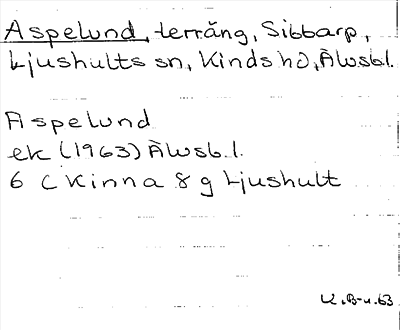 Aspelund, terräng, Sibbarp,
Ljushults sn, Kinds hd, Älvsbl.
Aspelund
ek (1963) Älvsb.l.
6 C Kinna 8 g Ljushult